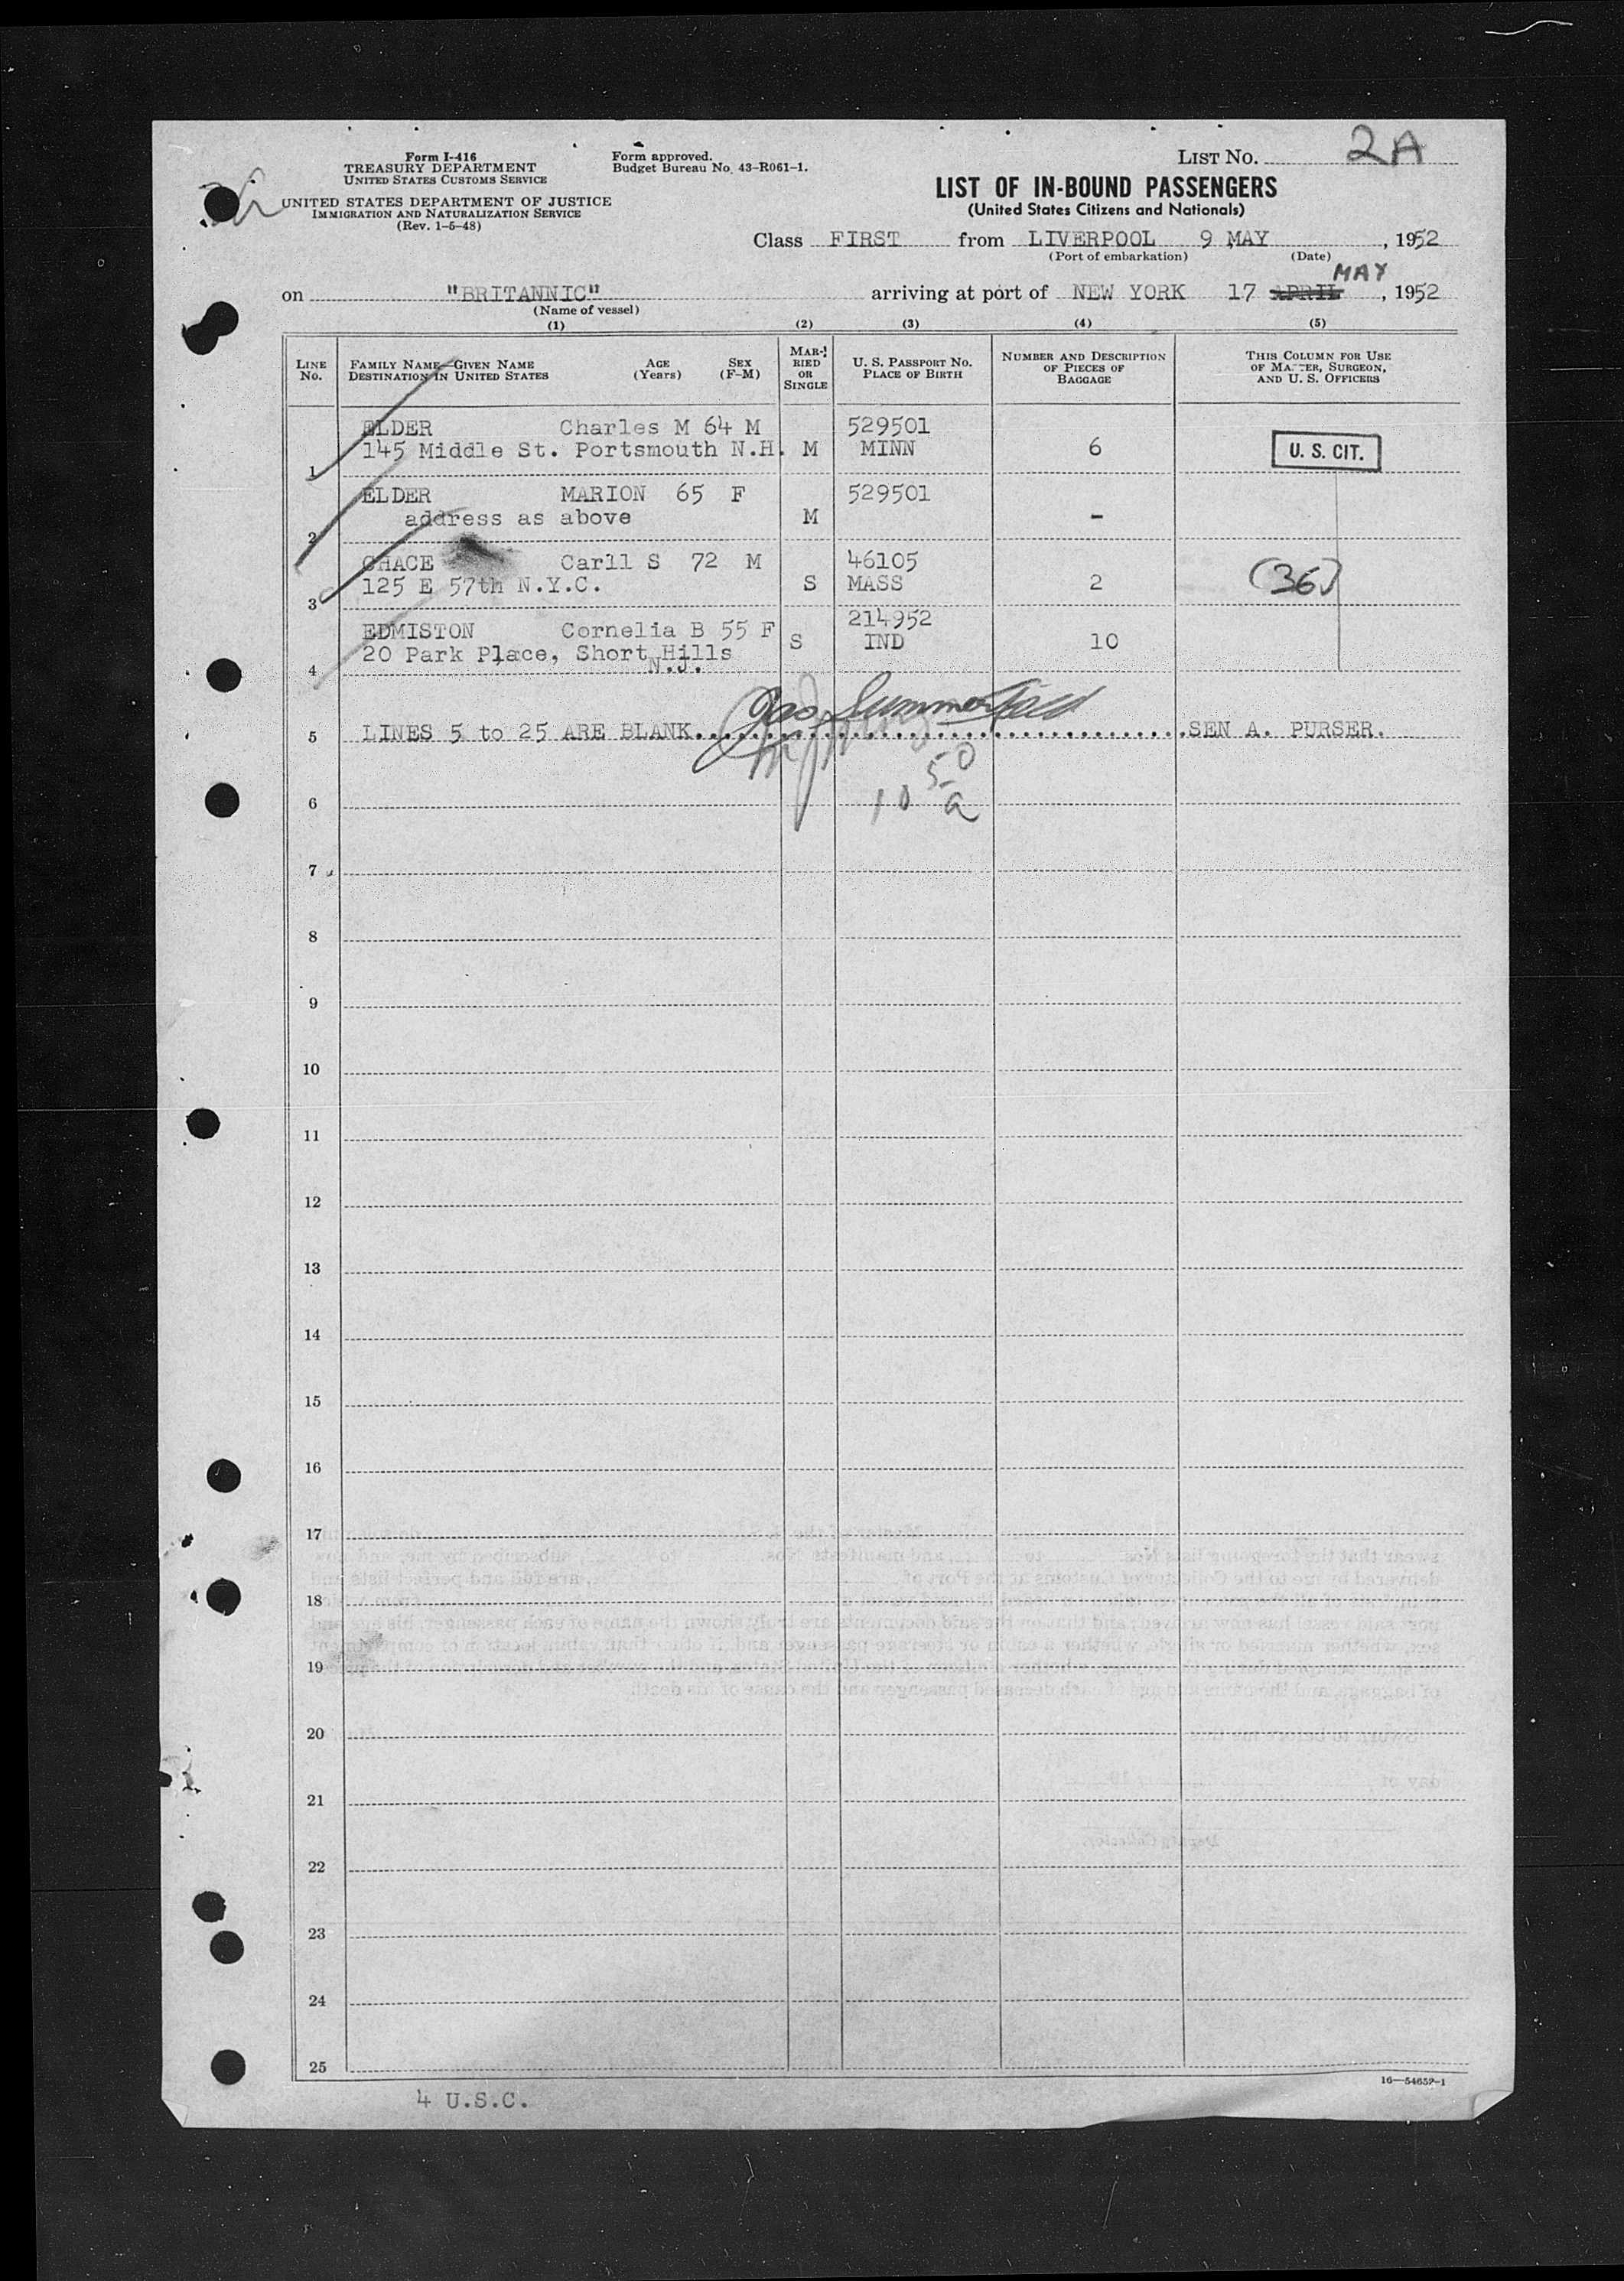 Form I-416
TREASURY DEPARTMENT
UNITED STATES CUSTOMS SERVICE
UNITED STATES DEPARTMENT OF JUSTICE
IMMIGRATION AND NATURALIZATION SERVICE
(Rev. 1-5-48)
Form approved.
Budget Bureau No. 43-R061-1.
LIST No. 2A
LIST OF IN-BOUND PASSENGERS
(United States Citizens and Nationals)
Class FIRST from LIVERPOOL 9 MAY, 1952
(Port of embarkation) (Date)
MAY
on "BRITANNIC" arriving at port of NEW YORK 17 APRIL, 1952
(Name of vessel)
(1) (2) (3) (4) (5)
LINE No.
FAMILY NAME—GIVEN NAME DESTINATION IN UNITED STATES
AGE (Years)
SEX (F-M)
MARRIED OR SINGLE
U. S. PASSPORT NO. PLACE OF BIRTH
NUMBER AND DESCRIPTION OF PIECES OF BAGGAGE
THIS COLUMN FOR USE OF MASTER, SURGEON, AND U. S. OFFICERS
ELDER Charles M 64 M 529501
1 145 Middle St. Portsmouth N.H. M MINN 6 U. S. CIT.
ELDER MARION 65 F 529501
2 address as above M -
CHACE Carll S 72 M 46105
3 125 E 57th N.Y.C. S MASS 2 (36)
EDMISTON Cornelia B 55 F 214952
4 20 Park Place, Short Hills S IND 10
N.J.
Jas Summerfield
5 LINES 5 to 25 ARE BLANK. SEN A. PURSER.
10 50 a
6
7
8
9
10
11
12
13
14
15
16
17
18
19
20
21
22
23
24
25
16—54652-1
4 U.S.C.